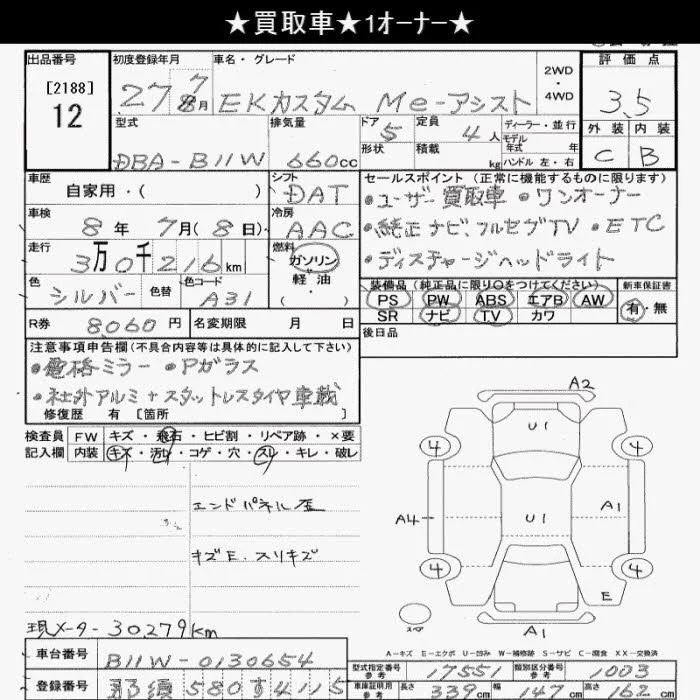 ★買取車★1オーナー★
出品番号
[2188]
12
初度登録年月
27 7 月
車名・グレード
EKカスタム Me-アシスト
2WD
・
4WD
評価点
3.5
型式
DBA-B11W
排気量
660cc
ドア
5
形状
定員
4人
積載
kg
ディーラー・並行
モデル
年式 年
ハンドル 左・右
外装 内装
C B
車歴
自家用・( )
シフト
DAT
車検
8年 7月(8日)
冷房
AAC
走行
3万0千216km
燃料
ガソリン
・
軽油
( ・ )
色
シルバー
色替
色コード
A31
R券 8060円
名変期限 月 日
セールスポイント(正常に機能するものに限ります)
・ユーザー買取車 ・ワンオーナー
・純正ナビ、フルセグTV ・ETC
・ディスチャージヘッドライト
装備品(純正品に限り○をつけてください)
PS PW ABS エアB AW
SR ナビ TV カワ
新車保証書
有・無
後日品
注意事項申告欄(不具合内容等は具体的に記入して下さい)
・電格ミラー ・Pガラス
・社外アルミ+スタットレスタイヤ車載
修復歴 有 [箇所 ]
検査員
記入欄
FW キズ・飛石・ヒビ割・リペア跡・×要
内装 キズ・汚レ・コゲ・穴・スレ・キレ・破レ
エンドパネル歪
キズE.スリキズ
現メーター 30,279km
A2
U1
4 4
A4 U1 A1
4 4
E
スペア
A1
A-キズ E-エクボ U-凹み W-補修跡 S-サビ C-腐食 XX-交換済
車台番号 B11W-0130654
登録番号 那須580す4115
型式指定番号 参考 17551
類別区分番号 参考 1003
車庫証明用 参考 長さ 339cm 幅 147cm 高さ 162cm